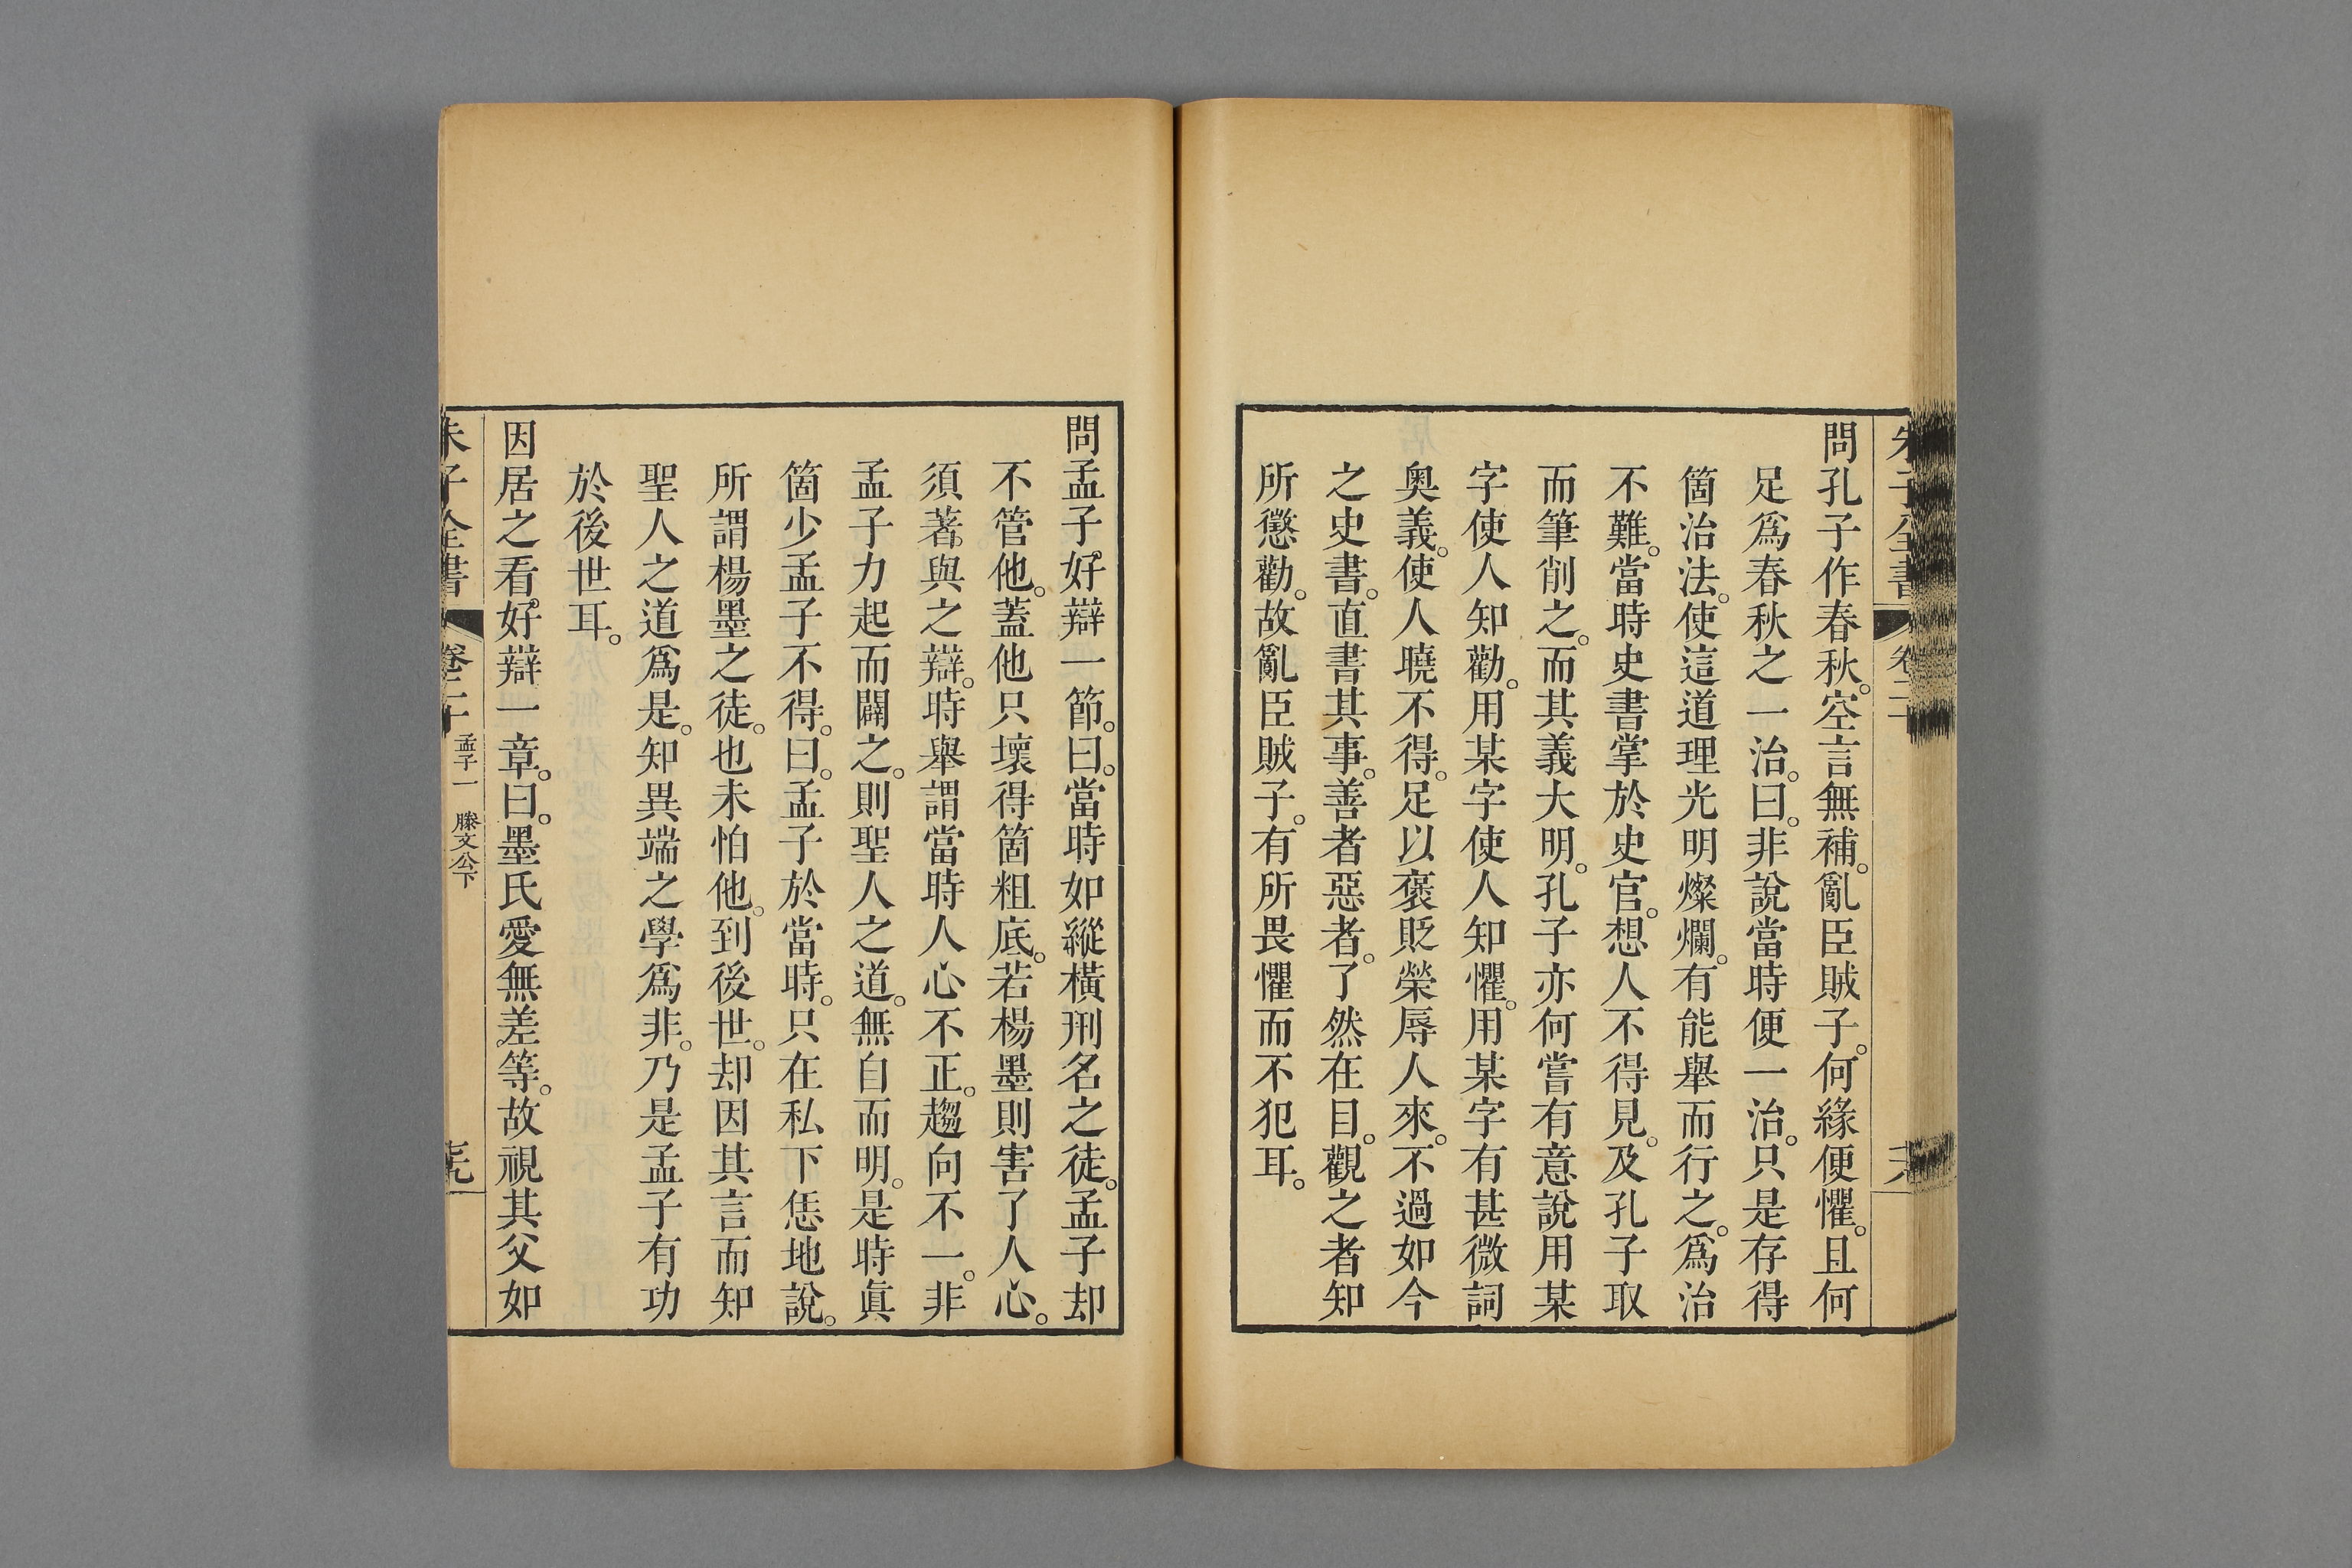 問孔子作春秋。空言無補。亂臣賊子。何緣便懼。且何
足爲春秋之一治。曰。非說當時便一治。只是存得
箇治法。使這道理光明燦爛。有能舉而行之。爲治
不難。當時史書掌於史官。想人不得見。及孔子取
而筆削之。而其義大明。孔子亦何嘗有意說用某
字使人知勸。用某字使人知懼。用某字有甚微詞
奧義。使人曉不得。足以褒貶榮辱人來。不過如今
之史書。直書其事。善者惡者。了然在目。觀之者知
所懲勸。故亂臣賊子。有所畏懼而不犯耳。
問孟子好辯一節。曰。當時如縱橫刑名之徒。孟子却
不管他。蓋他只壞得箇粗底。若楊墨則害了人心。
須著與之辯。時舉謂當時人心不正。趨向不一。非
孟子力起而闢之。則聖人之道。無自而明。是時眞
箇少孟子不得。曰。孟子於當時。只在私下恁地說。
所謂楊墨之徒。也未怕他。到後世。却因其言而知
聖人之道爲是。知異端之學爲非。乃是孟子有功
於後世耳。
因居之看好辯一章。曰。墨氏愛無差等。故視其父如
朱子全書 卷二十 孟子一 滕文公下